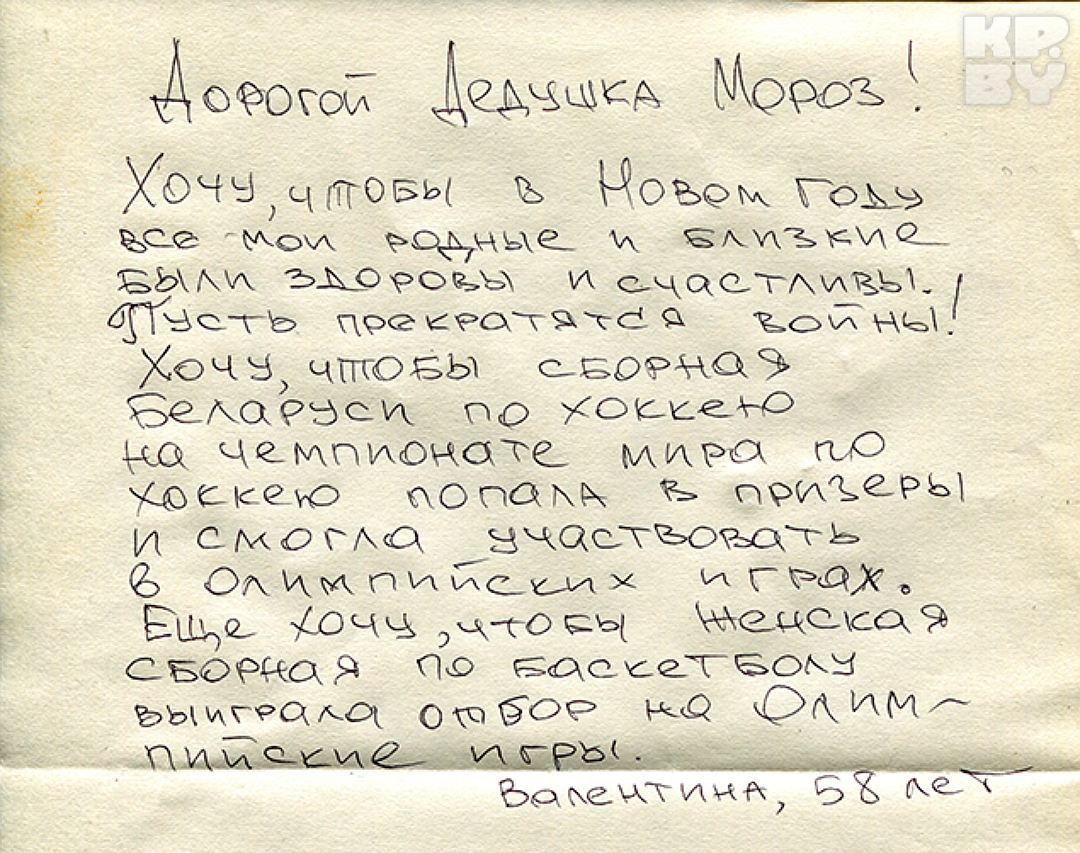 KP.
BY
Дорогой Дедушка Мороз!
Хочу, чтобы в Новом году
все мои родные и близкие
были здоровы и счастливы.
Пусть прекратятся войны!
Хочу, чтобы сборная
Беларуси по хоккею
на чемпионате мира по
хоккею попала в призеры
и смогла участвовать
в Олимпийских играх.
Еще хочу, чтобы женская
сборная по баскетболу
выиграла отбор на Олим-
пийские игры.
Валентина, 58 лет